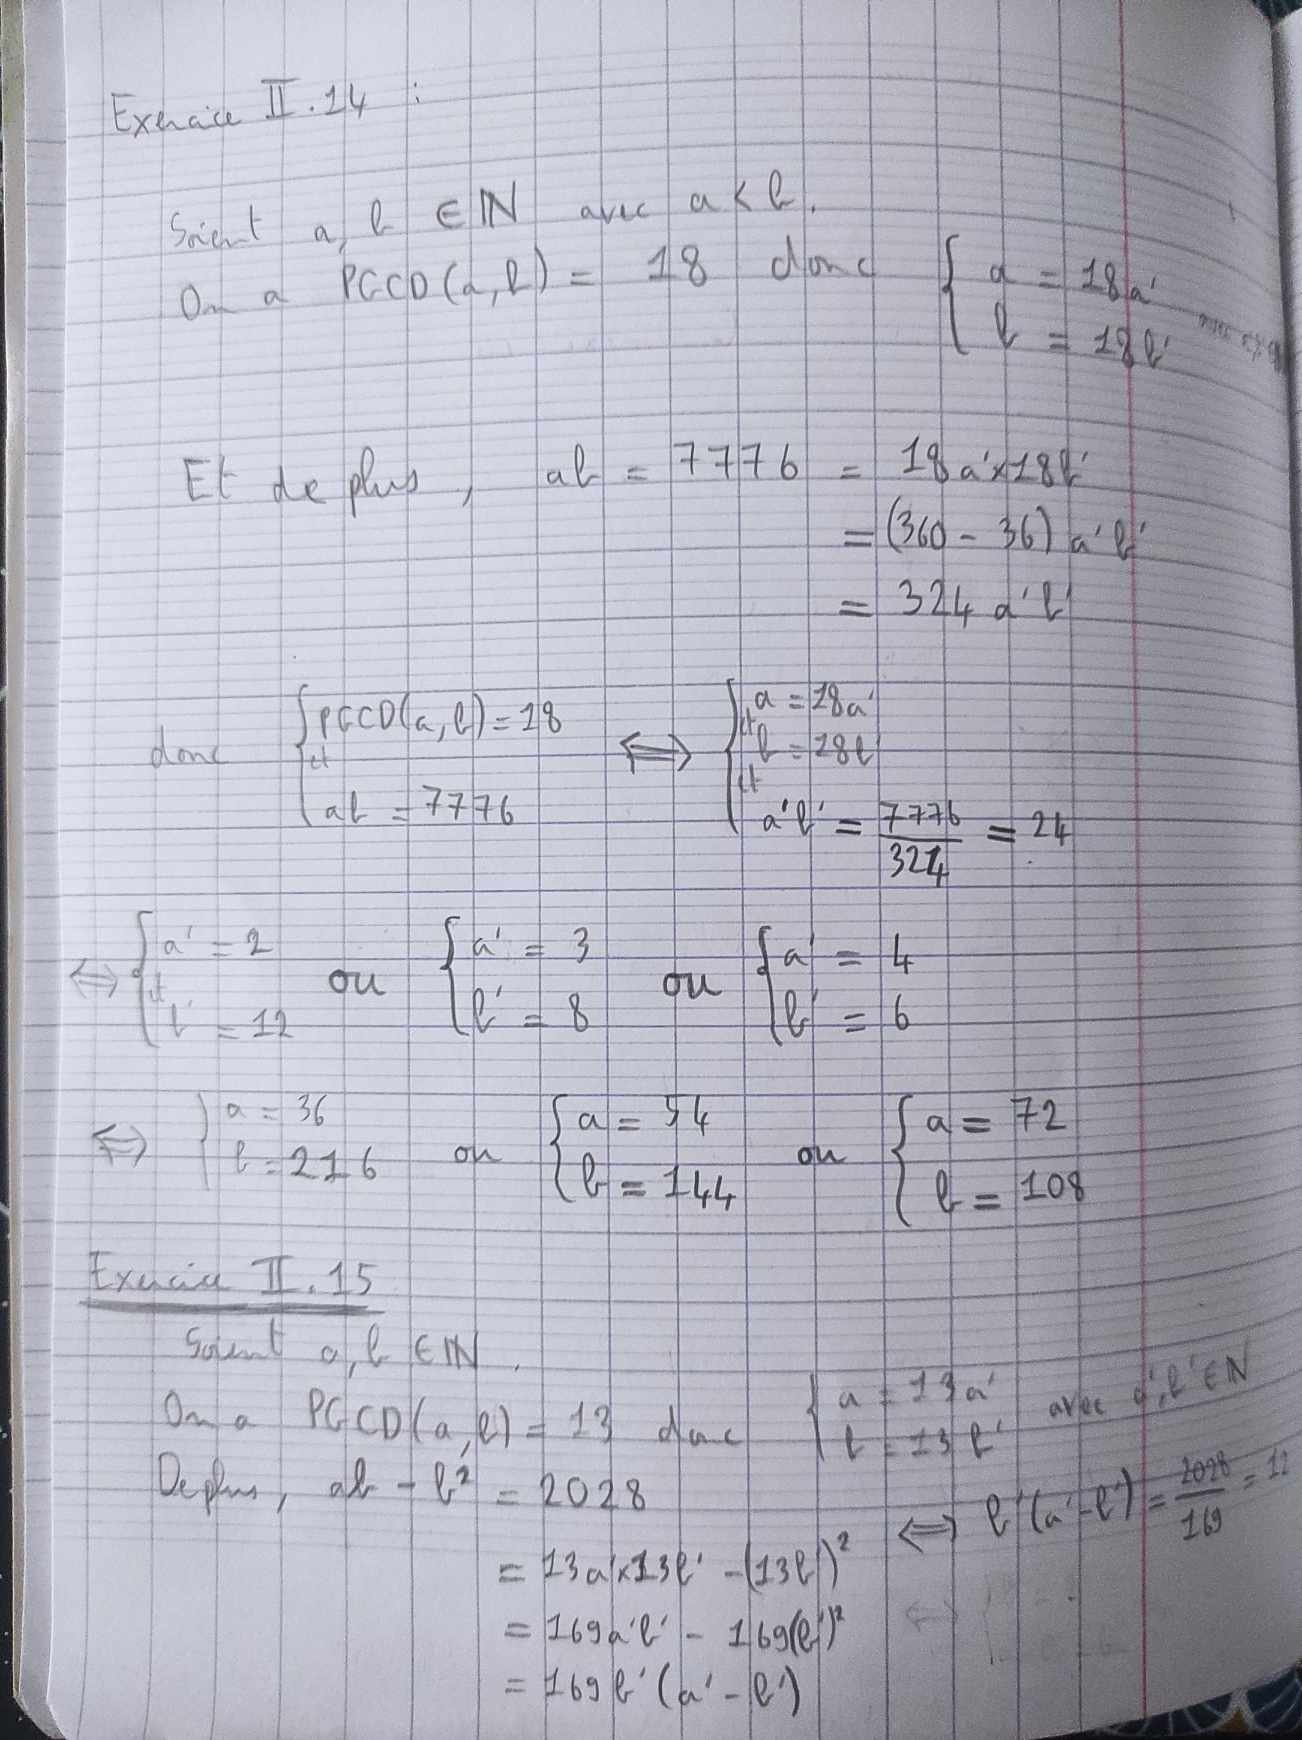 Exercice II.14 :
Soient a, b ∈ ℕ avec a < b.
On a PGCD(a, b) = 18 donc { a = 18a'
b = 18b'
Et de plus, ab = 7776 = 18a' × 18b'
= (360 - 36) a'b'
= 324 a'b'
donc { PGCD(a, b) = 18 et ab = 7776 ⟺ { a = 18a' et b = 18b et a'b' = 7776/324 = 24
⟺ { a' = 2 et b' = 12 ou { a' = 3 b' = 8 ou { a' = 4 b' = 6
⟺ { a = 36 b = 216 ou { a = 54 b = 144 ou { a = 72 b = 108
Exercice II.15
Soient a, b ∈ ℕ.
On a PGCD(a, b) = 13 donc { a = 13a' b = 13b' avec a', b' ∈ ℕ
De plus, ab - b² = 2028 ⟺ b'(a' - b') = 2028/169 = 12
= 13a' × 13b' - (13b')²
= 169a'b' - 169(b')² ⟺ {
= 169 b' (a' - b')